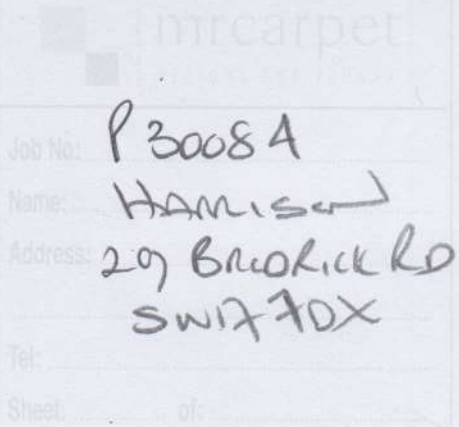 mrcarpet
Job No: P30084
Name: HARRISON
Address: 29 BRODRICK RD
SW17 7DX
Tel:
Sheet: of: